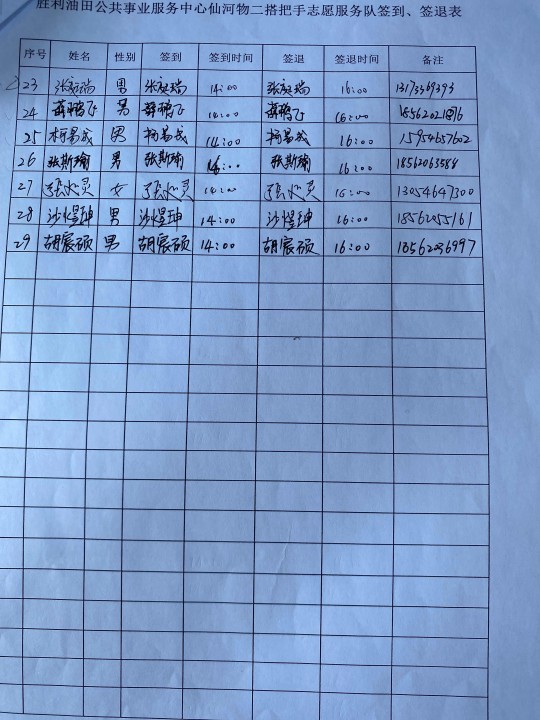 胜利油田公共事业服务中心仙河物二搭把手志愿服务队签到、签退表
序号 姓名 性别 签到 签到时间 签退 签退时间 备注
23 张庭瑞 男 张庭瑞 14:00 张庭瑞 16:00
24 薛鹏飞 男 薛鹏飞 14:00 薛鹏飞 16:00
25 柯易成 男 柯易成 14:00 柯易成 16:00 15954657602
26 张斯瑜 男 张斯瑜 14:00 张斯瑜 16:00 18562063584
27 女 14:00 16:00 13054647300
28 沙煜珅 男 沙煜珅 14:00 沙煜珅 16:00 18562055161
29 胡宸硕 男 胡宸硕 14:00 胡宸硕 16:00 18562036997